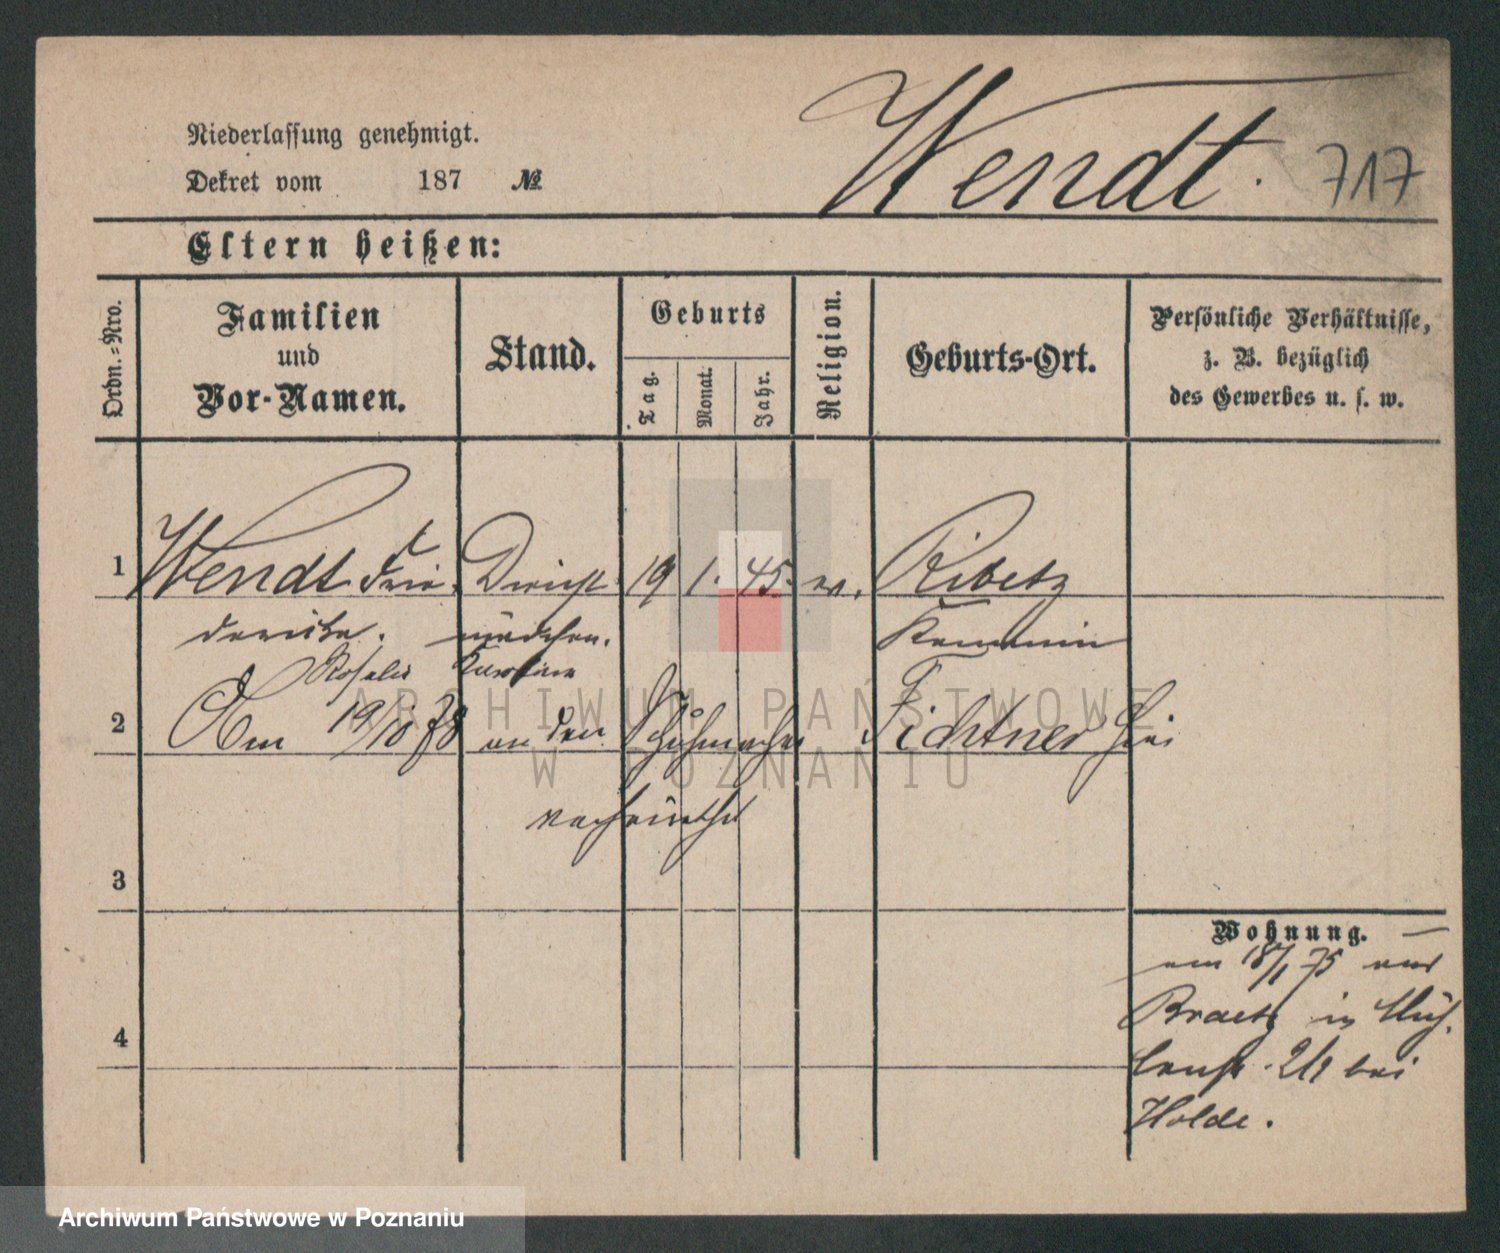 Wendt. 717
Niederlassung genehmigt.
Dekret vom 187 №
Eltern heißen:
Ordn.=Nro.
Familien
und
Vor-Namen.
Stand.
Geburts
Tag.
Monat.
Jahr.
Religion.
Geburts-Ort.
Persönliche Verhältnisse,
z. B. bezüglich
des Gewerbes u. s. w.
1 Wendt Frie= Dienst 19 1. 45. ev. Ribetz
derike. mädchen. Kemmin
Rosalie Karoline
2 Am 19/10 78 an den Schuhmacher Fichtner hier
verheirathet
3
4
Wohnung.
am 18/1 75 aus
Braetz in Müh=
lenstr. 2/1 bei
Holde.
ARCHIWUM PAŃSTWOWE
W POZNANIU
Archiwum Państwowe w Poznaniu